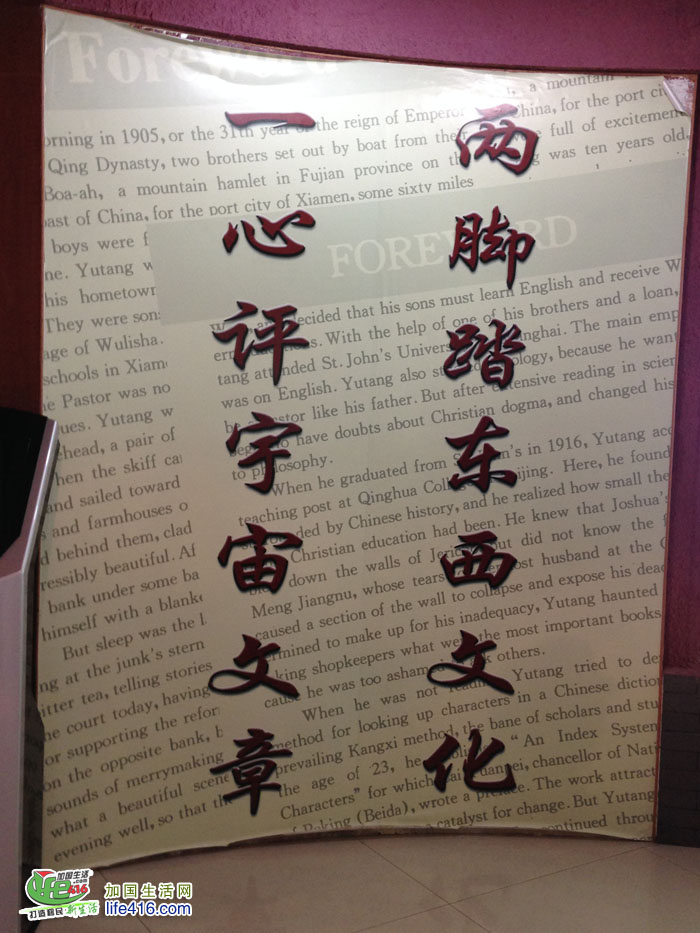 两脚踏东西文化
一心评宇宙文章
Forewo
orning in 1905, or the 31th year of the reign of Emperor
Qing Dynasty, two brothers set out by boat from the
Boa-ah, a mountain hamlet in Fujian province on th
ast of China, for the port city of Xiamen, some sixty miles
boys were f
ne. Yutang w
his hometown
They were son
age of Wulisha.
schools in Xiam
e Pastor was no
ues. Yutang w
head, a pair of
hen the skiff ca
and sailed toward
s and farmhouses o
d behind them, clad
ressibly beautiful. Af
bank under some ba
himself with a blanke
But sleep was the l
ng at the junk's stern
itter tea, telling stories
he court today, having
or supporting the refor
on the opposite bank, b
sounds of merrymaking
what a beautiful scene
evening well, so that th
a mountain
China, for the port city
full of excitement
was ten years old
FOREWORD
decided that his sons must learn English and receive W
With the help of one of his brothers and a loan,
tang attended St. John's Univers
anghai. The main emp
was on English. Yutang also st
ology, because he want
be a pastor like his father. But after extensive reading in scien
to have doubts about Christian dogma, and changed his
to philosophy.
When he graduated from S
n's in 1916, Yutang acc
teaching post at Qinghua Colle
ijing. Here, he found
ded by Chinese history, and he realized how small the
Christian education had been. He knew that Joshua's
down the walls of Jericho but did not know the
Meng Jiangnu, whose tears
ost husband at the
caused a section of the wall to collapse and expose his dead
ermined to make up for his inadequacy, Yutang haunted
king shopkeepers what we
the most important books
cause he was too asham
k others.
When he was not reading, Yutang tried to de
method for looking up characters in a Chinese diction
prevailing Kangxi method, the bane of scholars and stu
the age of 23, he
“An Index System
Characters” for which
ei, chancellor of Nati
of Peking (Beida), wrote a preface. The work attract
a catalyst for change. But Yutang
continued throu
life416
加国生活.com
打造移民·新生活
加国生活网
life416.com